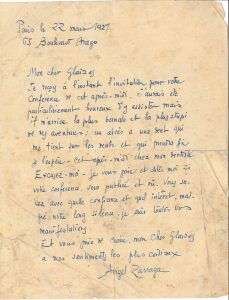 Paris le 22 mars 1937.
Boulevard Arago
Mon cher Gleizes
Je reçois à l'instant l'invitation pour votre
Conference de cet après-midi. J'aurais été
particulièrement heureux d'y assister mais
il m'arrive la plus banale et la plus stupide
des aventures: un abcès a une dent qui
me tient sur les nerfs et qui
cet après-midi chez mon dentiste
Excusez-moi je vous prie et dites moi si
votre conference sera publiée et où. Vous
avec quelle confiance et quel interet, mal-
gré notre long silence, je suis toutes vos
manifestations
Et vous prie de croire, mon cher Gleizes
a mes sentiments les plus cordiaux
Angel Zarraga